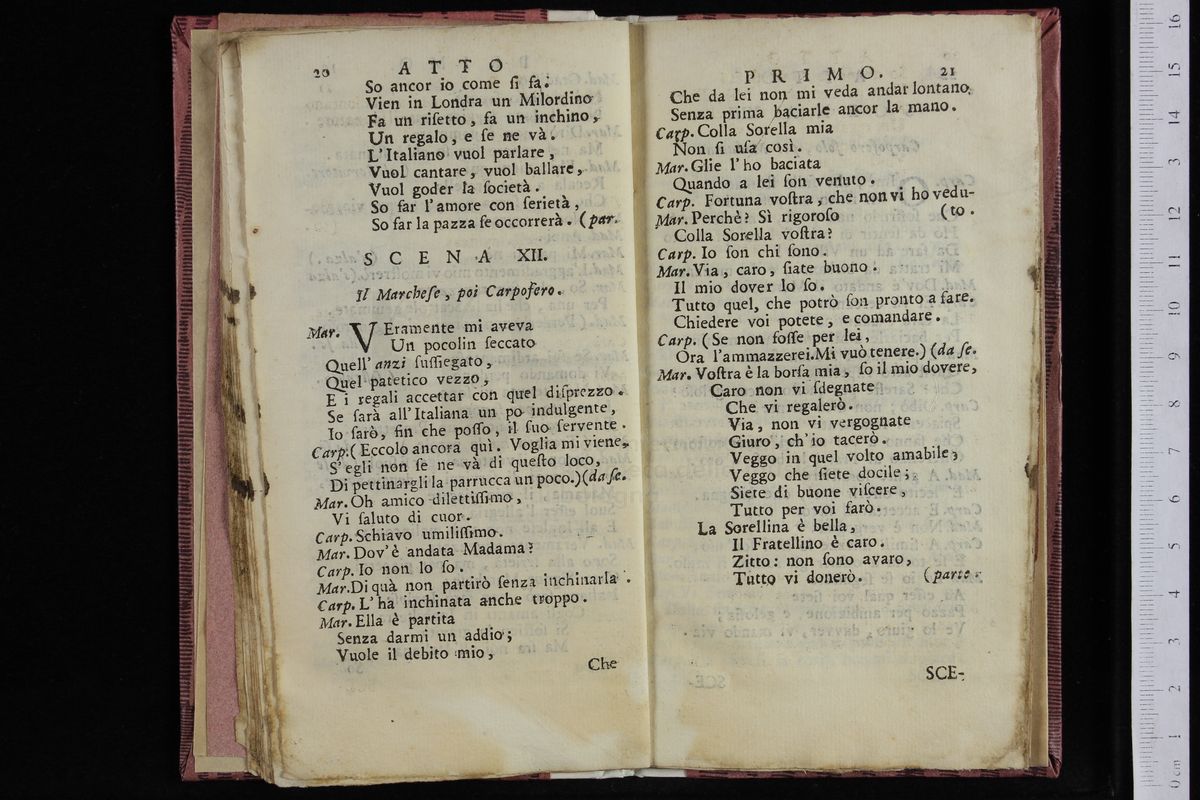 20 ATTO
So ancor io come ſi ſa.
Vien in Londra un Milordino
Fa un riſetto, fa un inchino,
Un regalo, e ſe ne và.
L'Italiano vuol parlare,
Vuol cantare, vuol ballare,
Vuol goder la ſocietà.
So far l'amore con ſerietà,
So far la pazza ſe occorrerà. (par.
SCENA XII.
Il Marcheſe, poi Carpofero.
Mar. VEramente mi aveva
Un pocolin ſeccato
Quell' anzi ſuſſiegato,
Quel patetico vezzo,
E i regali accettar con quel diſprezzo.
Se ſarà all'Italiana un po indulgente,
Io ſarò, fin che poſſo, il ſuo ſervente.
Carp. (Eccolo ancora quì. Voglia mi viene,
S'egli non ſe ne và di queſto loco,
Di pettinargli la parrucca un poco.) (da ſe.
Mar. Oh amico dilettiſſimo,
Vi ſaluto di cuor.
Carp. Schiavo umiliſſimo.
Mar. Dov'è andata Madama?
Carp. Io non lo ſo.
Mar. Di quà non partirò ſenza inchinarla.
Carp. L'ha inchinata anche troppo.
Mar. Ella è partita
Senza darmi un addio;
Vuole il debito mio,
Che
PRIMO. 21
Che da lei non mi veda andar lontano,
Senza prima baciarle ancor la mano.
Carp. Colla Sorella mia
Non ſi uſa così.
Mar. Glie l'ho baciata
Quando a lei ſon venuto.
Carp. Fortuna voſtra, che non vi ho vedu-
Mar. Perchè? Sì rigoroſo (to.
Colla Sorella voſtra?
Carp. Io ſon chi ſono.
Mar. Via, caro, ſiate buono.
Il mio dover lo ſo.
Tutto quel, che potrò ſon pronto a fare.
Chiedere voi potete, e comandare.
Carp. (Se non foſſe per lei,
Ora l'ammazzerei. Mi vuò tenere.) (da ſe.
Mar. Voſtra è la borſa mia, ſo il mio dovere,
Caro non vi ſdegnate
Che vi regalerò.
Via, non vi vergognate
Giuro, ch'io tacerò.
Veggo in quel volto amabile,
Veggo che ſiete docile;
Siete di buone viſcere,
Tutto per voi farò.
La Sorellina è bella,
Il Fratellino è caro.
Zitto: non ſono avaro,
Tutto vi donerò. (parte.
SCE-